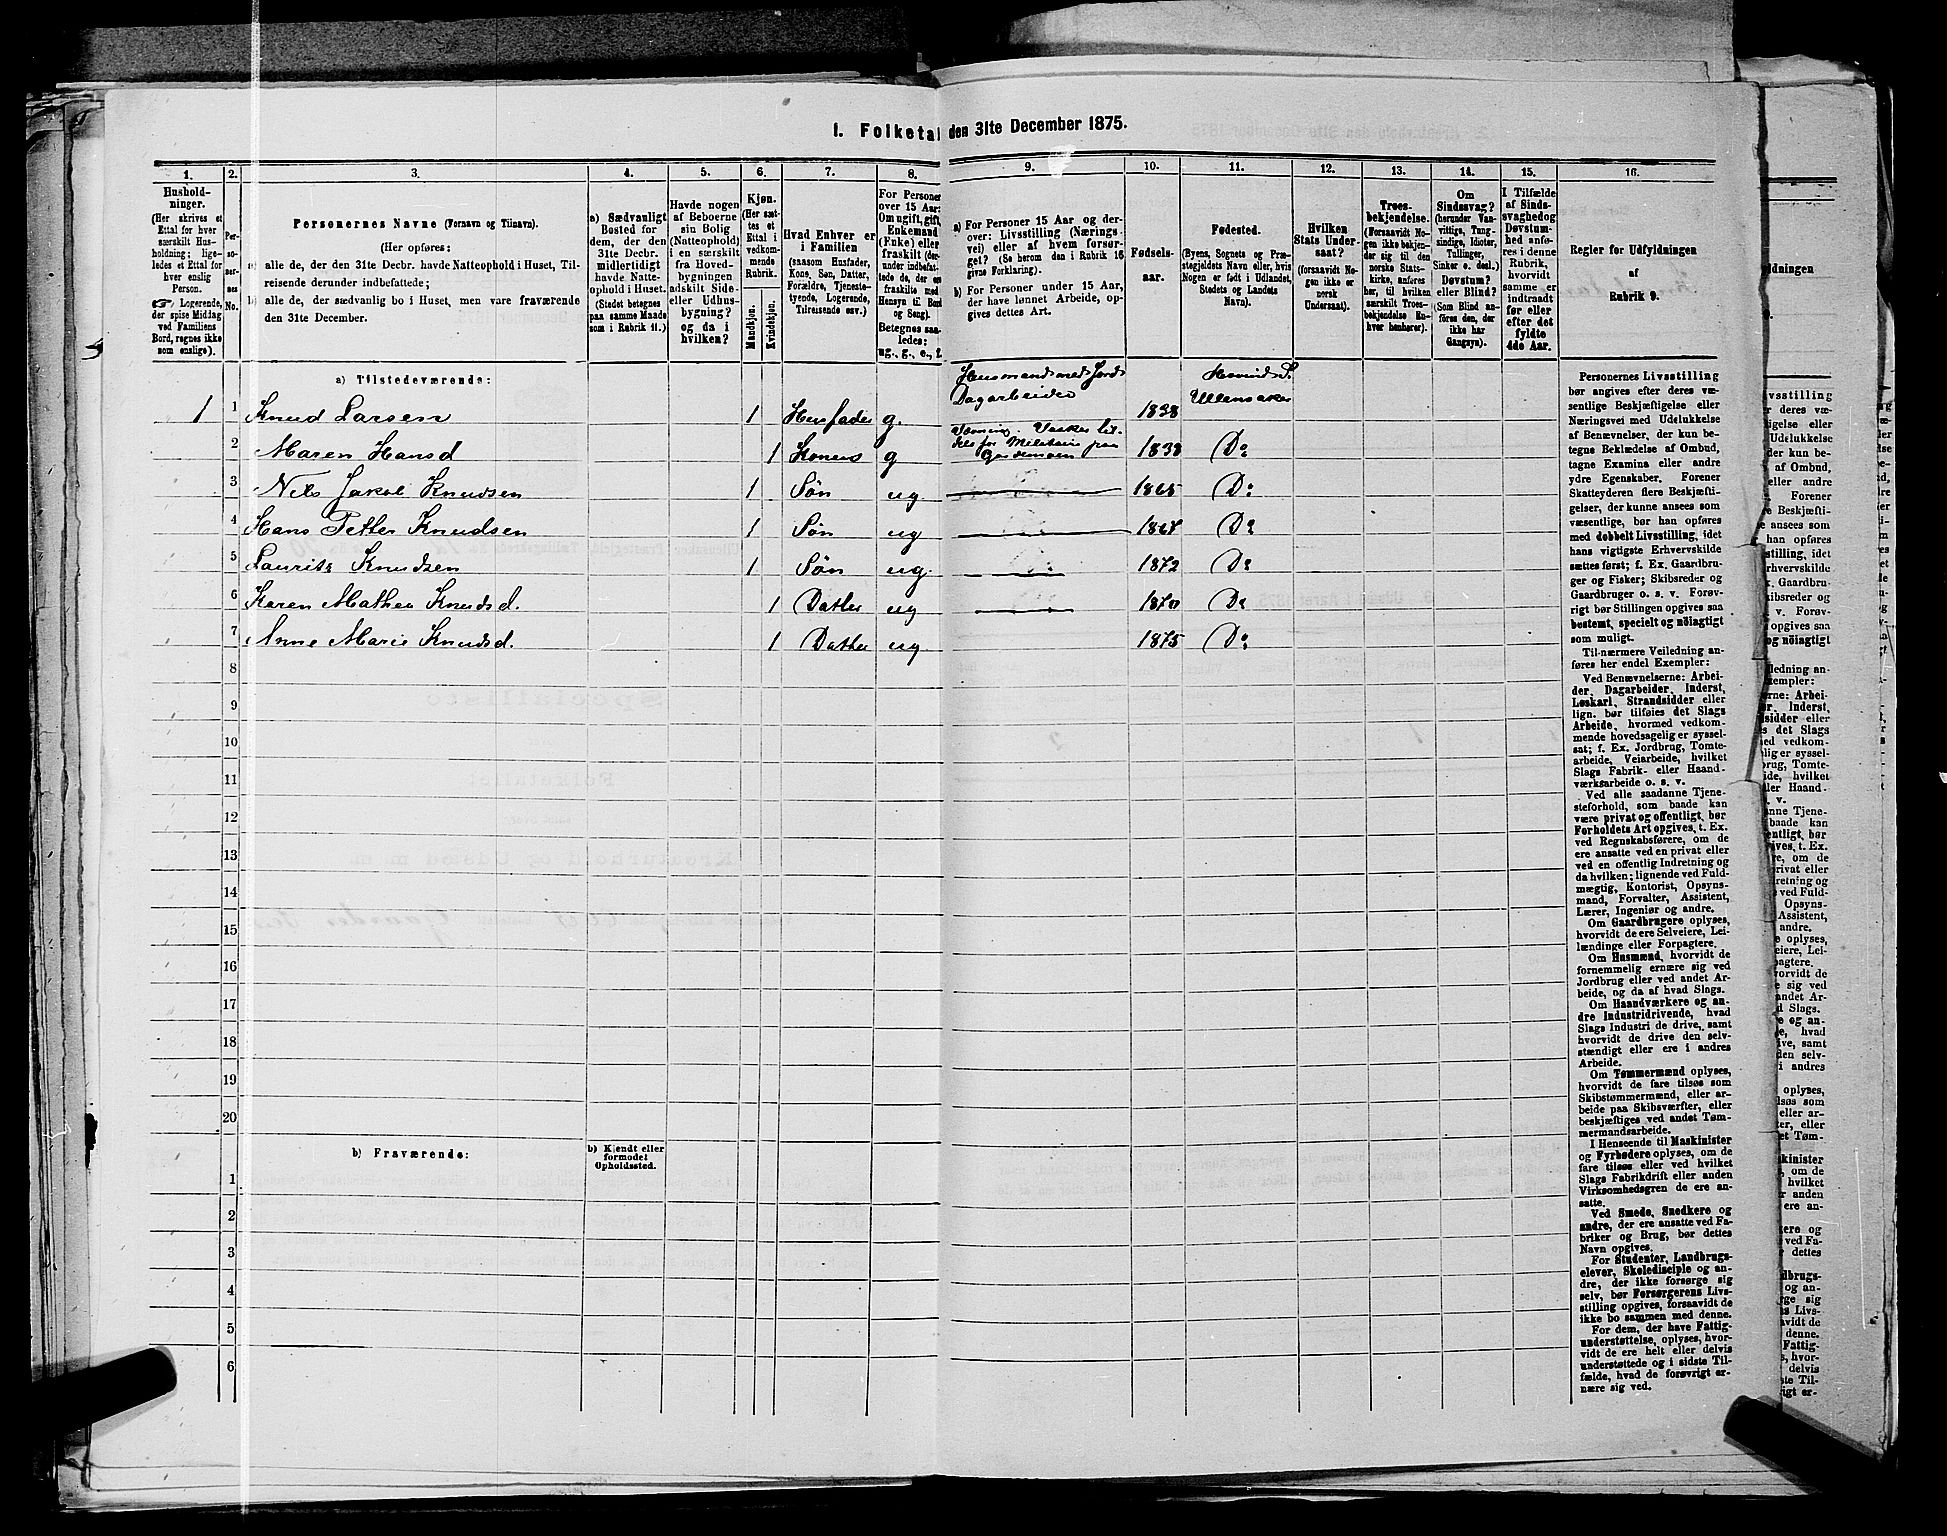 1. Folketal den 31te December 1875.
1.
2.
3.
4.
5.
6.
7.
8.
9.
10.
11.
12.
13.
14.
15.
16.
Hushold-
ninger.
(Her skrives et
Ettal for hver
særskilt Hus-
holdning; lige-
ledes et Ettal for
hver enslig
Person.
☞ Logerende,
der spise Middag
ved Familiens
Bord, regnes ikke
som enslige).
Per-
so-
ner-
nes
No.
Personernes Navne (Fornavn og Tilnavn).
(Her opføres:
a) alle de, der den 31te Decbr. havde Natteophold i Huset, Til-
reisende derunder indbefattede;
b) alle de, der sædvanlig bo i Huset, men vare fraværende
den 31te December.
a) Sædvanligt
Bosted for
dem, der den
31te Decbr.
midlertidigt
havde Natte-
ophold i Huset.
(Stedet betegnes
paa samme Maade
som i Rubrik 11.)
Havde nogen
af Beboerne
sin Bolig
(Natteophold)
i en særskilt
fra Hoved-
bygningen
adskilt Side-
eller Udhus-
bygning?
og da i
hvilken?
Kjøn.
(Her sæt-
tes et
Ettal i
vedkom-
mende
Rubrik.
Mandkjøn.
Kvindekjøn.
Hvad Enhver er
i Familien
(saasom Husfader,
Kone, Søn, Datter,
Forældre, Tjeneste-
tyende, Logerende,
Tilreisende osv.)
For Personer
over 15 Aar:
Om ugift, gift,
Enkemand
(Enke) eller
fraskilt (der-
under indbefat-
tede de, der ere
fraskilte med
Hensyn til Bord
og Seng).
Betegnes saa-
ledes:
ug., g., e., f.
a) For Personer 15 Aar og der-
over: Livsstilling (Nærings-
vei) eller af hvem forsør-
get? (Se herom den i Rubrik 16
givne Forklaring).
b) For Personer under 15 Aar,
der have lønnet Arbeide, op-
gives dettes Art.
Fødsels-
aar.
Fødested.
(Byens, Sognets og Præ-
stegjeldets Navn eller, hvis
Nogen er født i Udlandet,
Stedets og Landets
Navn).
Hvilken
Stats Under-
saat?
(forsaavidt No-
gen ikke er
norsk
Undersaat).
Troes-
bekjendelse.
(Forsaavidt No-
gen ikke bekjen-
der sig til den
norske Stats-
kirke, anføres
her, til hvilken
særskilt Troes-
bekjendelse En-
hver henhører).
Om
Sindssvag?
(herunder Van-
vittige, Tung-
sindige, Idioter,
Tullinger,
Sinker o. desl.)
Døvstum?
eller Blind?
(Som Blind an-
føres den, der
ikke har
Gangsyn).
I Tilfælde
af Sinds-
svaghed og
Døvstum-
hed anfø-
res i denne
Rubrik,
hvorvidt
samme er
indtraadt
før eller
efter det
fyldte
4de Aar.
Regler for Udfyldningen
af
Rubrik 9.
a) Tilstedeværende:
1 1 Knud Larsen 1 Husfader g. Husmand med Jord Dagarbeider 1838 Ullensaker
2 Maren Hansd 1 Konen g 1838 Do
3 Nils Jakob Knudsen 1 Søn ug 1865 Do
4 Hans Petter Knudsen 1 Søn ug 1867 Do
5 Lauritz Knudsen 1 Søn ug. 1872 Do
6 Karen Mathea Knudsd. 1 Datter ug 1870 Do
7 Anne Marie Knudsd. 1 Datter ug 1875 Do
8
9
10
11
12
13
14
15
16
17
18
19
20
b) Fraværende:
b) Kjendt eller
formodet
Opholdssted.
1
2
3
4
5
6
Personernes Livsstilling
bør angives efter deres væ-
sentlige Beskjæftigelse eller
Næringsvei med Udelukkelse
af Benævnelser, der kun be-
tegne Beklædelse af Ombud,
tagne Examina eller andre
ydre Egenskaber. Forener
Skatteyderen flere Beskjæfti-
gelser, der kunne ansees som
væsentlige, bør han opføres
med dobbelt Livsstilling, idet
hans vigtigste Erhvervskilde
sættes først; f. Ex. Gaardbru-
ger og Fisker; Skibsreder og
Gaardbruger o. s. v. Forøv-
rigt bør Stillingen opgives saa
bestemt, specielt og nöiagtigt
som muligt.
Til nærmere Veiledning an-
føres her endel Exempler:
Ved Benævnelserne: Arbei-
der, Dagarbeider, Inderst,
Løskarl, Strandsidder eller
lign. bør tilføies det Slags
Arbeide, hvormed vedkom-
mende hovedsagelig er syssel-
sat; f. Ex. Jordbrug, Tomte-
arbeide, Veiarbeide, hvilket
Slags Fabrik- eller Haand-
værksarbeide o. s. v.
Ved alle saadanne Tjene-
steforhold, som baade kan
være privat og offentligt, bør
Forholdets Art opgives, t. Ex.
ved Regnskabsførere, om de
ere ansatte ved en privat eller
ved en offentlig Indretning og
da hvilken; lignende ved Fuld-
mægtig, Kontorist, Opsyns-
mand, Forvalter, Assistent,
Lærer, Ingeniør og andre.
Om Gaardbrugere oplyses,
hvorvidt de ere Selveiere, Lei-
lændinge eller Forpagtere.
Om Husmænd, hvorvidt de
fornemmelig ernære sig ved
Jordbrug eller ved andet Ar-
beide, og da af hvad Slags.
Om Haandværkere og an-
dre Industridrivende, hvad
Slags Industri de drive, samt
hvorvidt de drive den selv-
stændigt eller ere i andres
Arbeide.
Om Tømmermænd oplyses,
hvorvidt de fare tilsøs som
Skibstømmermænd, eller ar-
beide paa Skibsværfter, eller
beskjæftiges ved andet Tøm-
mermandsarbeide.
I Henseende til Maskinister
og Fyrbødere oplyses, om de
fare tilsøs eller ved hvilket
Slags Fabrikdrift eller anden
Virksomhedsgren de ere an-
satte.
Ved Smede, Snedkere og
andre, der ere ansatte ved Fa-
briker og Brug, bør dettes
Navn opgives.
For Studenter, Landbrugs-
elever, Skoledisciple og an-
dre, der ikke forsørge sig
selv, bør Forsørgerens Livs-
stilling opgives, forsaavidt de
ikke bo sammen med denne.
For dem, der have Fattig-
understøttelse, oplyses, hvor-
vidt de ere helt eller delvis
understøttede og i sidste Til-
fælde, hvad de forøvrigt er-
nære sig ved.